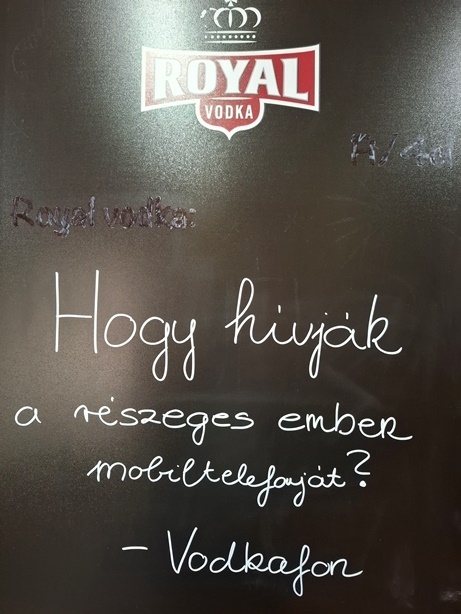 ROYAL
VODKA
Royal vodka:
Hogy hívják
a részeges ember
mobiltelefonját?
- Vodkafon